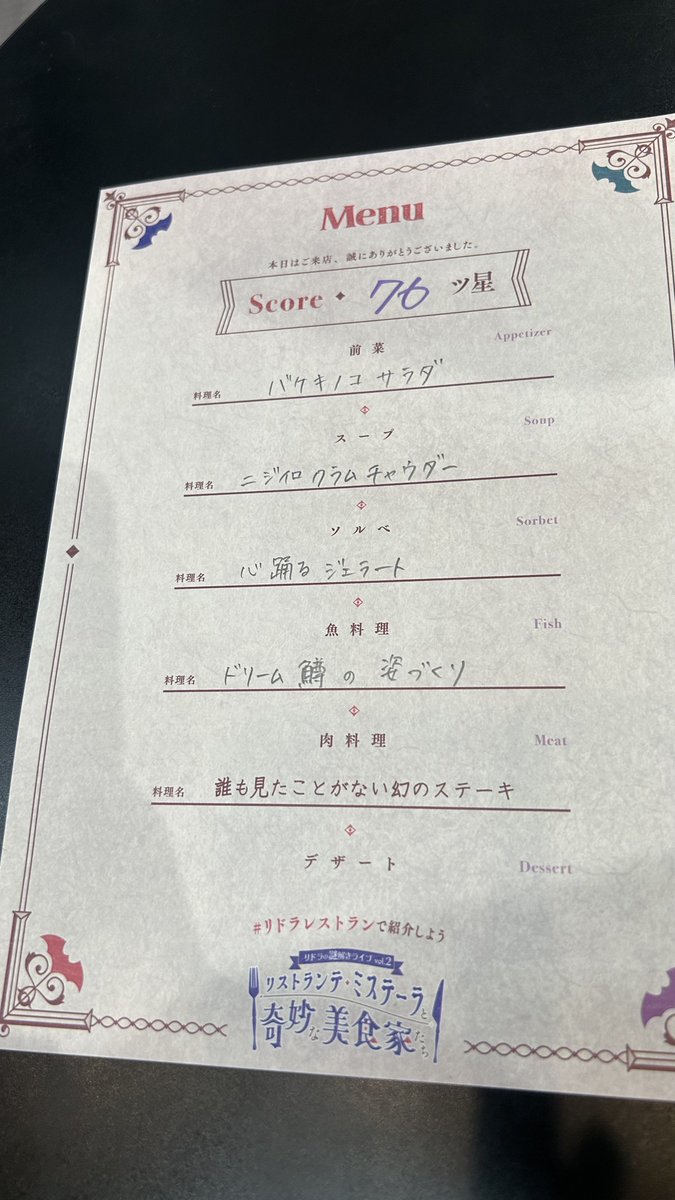 Menu
本日はご来店、誠にありがとうございました。
Score ◆ 76 ツ星
前菜 Appetizer
料理名 バケキノコ サラダ
スープ Soup
料理名 ニジイロ クラム チャウダー
ソルベ Sorbet
料理名 心踊る ジェラート
魚料理 Fish
料理名 ドリーム 鱒の 姿づくり
肉料理 Meat
料理名 誰も見たことがない幻のステーキ
デザート Dessert
#リドラレストランで紹介しよう
リドラの謎解きライブ vol.2
リストランテ・ミステーラと
奇妙な美食家たち